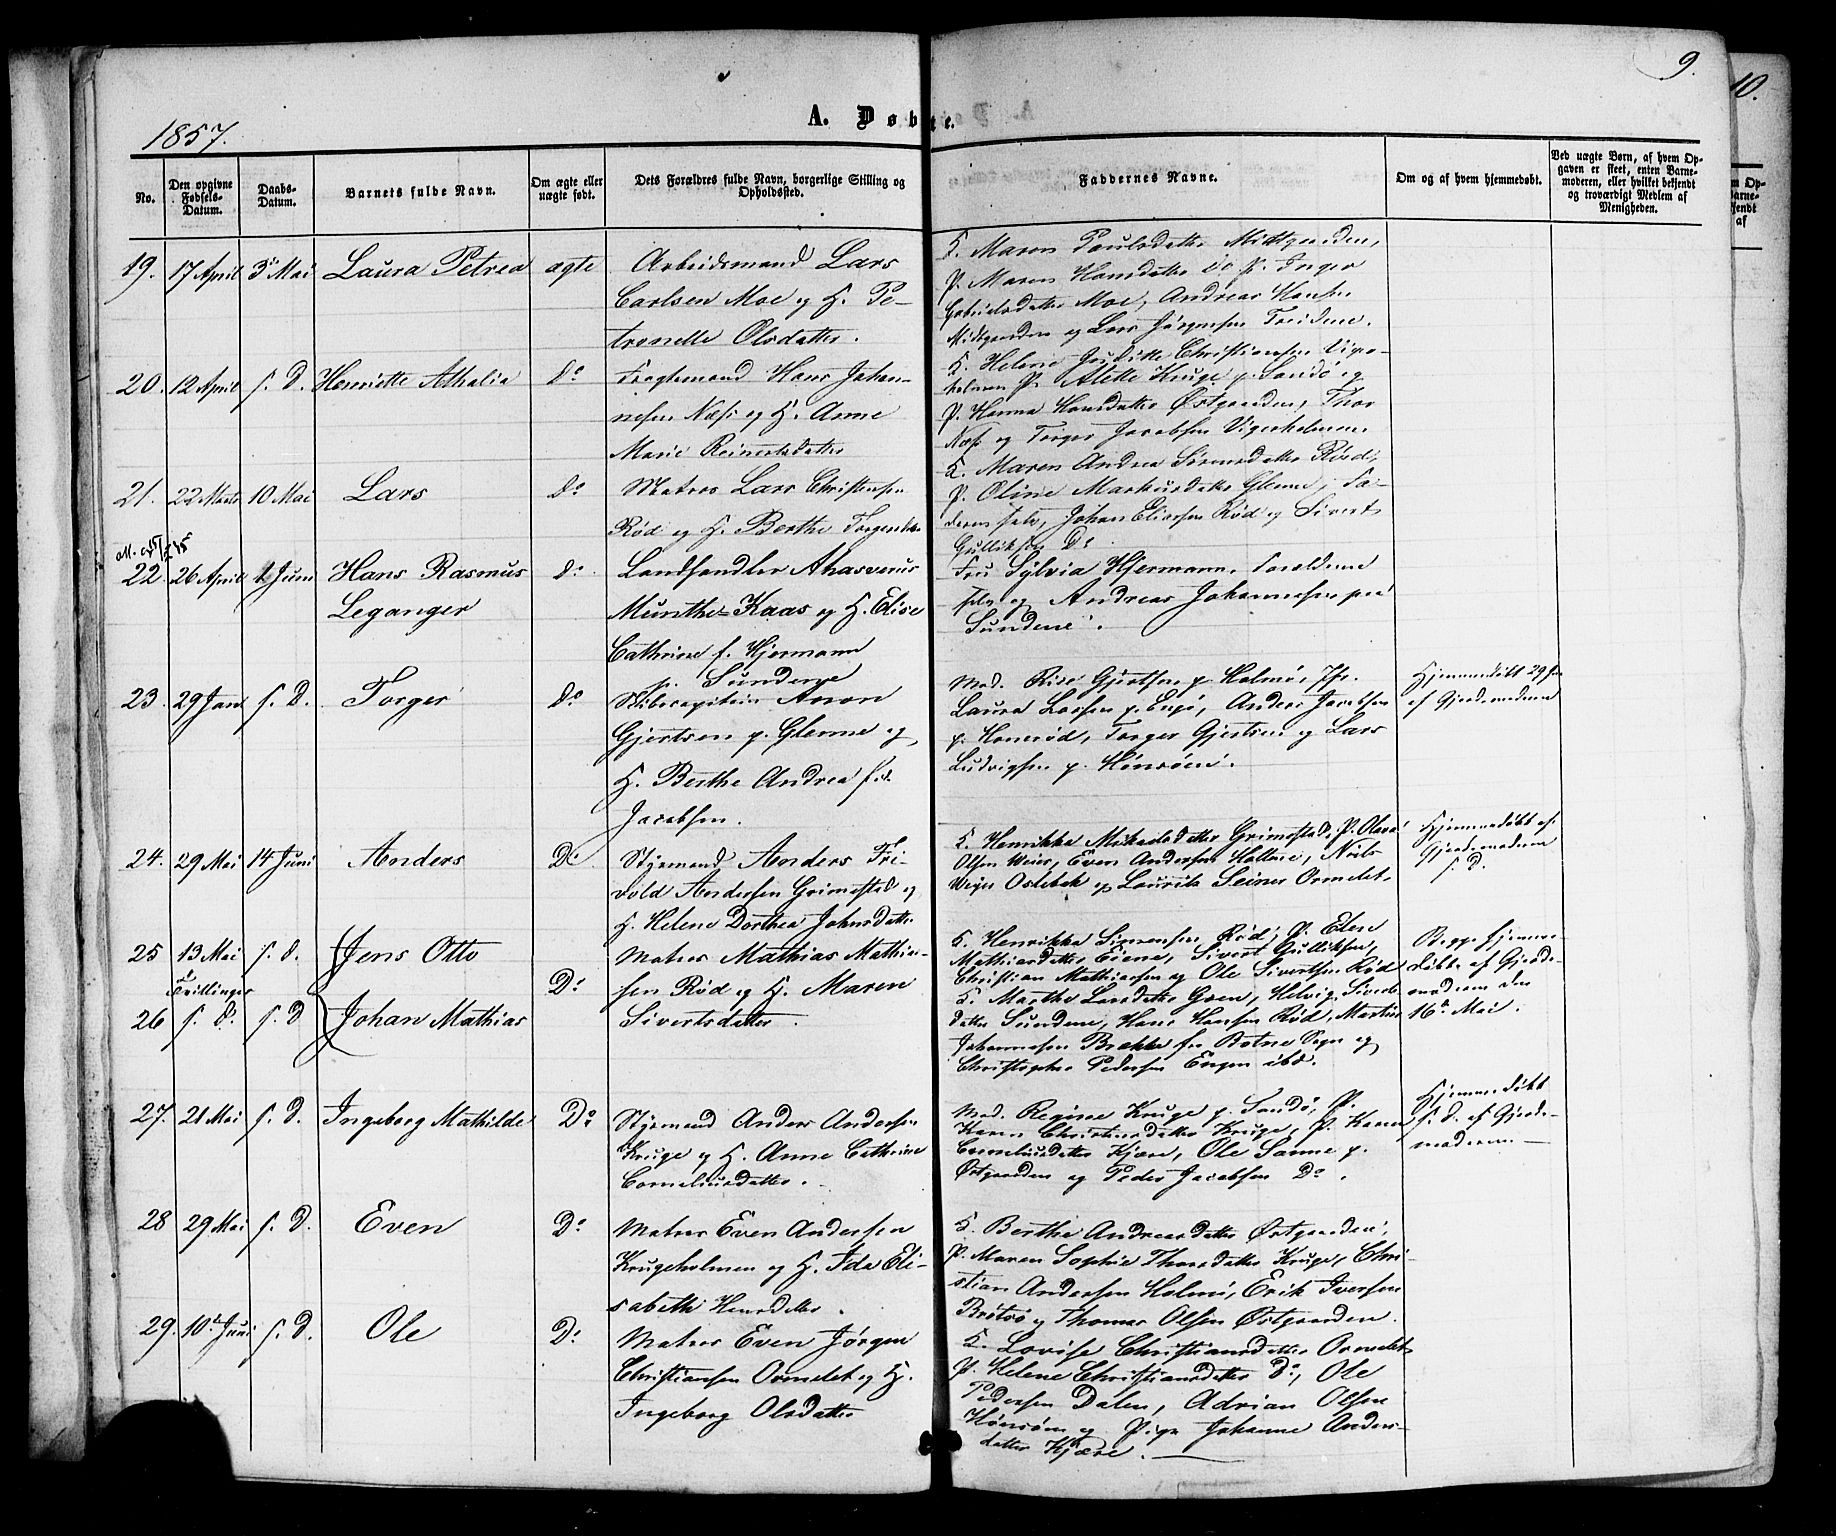 9.
10.
A. Døbte.
1857.
No.
Den opgivne Fødsels-Datum.
Daabs-Datum.
Barnets fulde Navn.
Om ægte eller uægte født.
Dets Forældres fulde Navn, borgerlige Stilling og Opholdssted.
Faddernes Navne.
Om og af hvem hjemmedøbt.
Ved uægte Børn, af hvem Opgaven er skeet, enten Barnemoderen, eller hvilket bekjendt og troværdigt Medlem af Menigheden.
19. 17 April 3 Mai Laura Petrea ægte
Arbeidsmand Lars
Carlsen Moe og H. Pe-
tronelle Olsdatter.
K. Maren Paulsdatter Midtgaarden,
P. Maren Hansdatter Do P. Inger
Gabrielsdatter Moe, Andreas Hansen
Midtgaarden og Lars Jørgensen
20. 12 April s. D. Henriette Athalia Do
Fragtemand Hans Johan-
nesen Næss og H. Anne
Marie Reinertsdatter
K. Helene Christiansen
P. Alette Kruge p. Sandø og
P. Hanna Hansdatter Østgaarden, Thor
Næss og Torger Jacobsen
21. 22 Marts 10 Mai Lars Do
Matros Lars Christensen
Rød og H. Berthe
K. Maren Andrea Sørensdatter Rød,
P. Oline Markusdatter Glenne, Fa-
deren selv, Johan Eliassen Rød og Sivert
Gulliksen Do
22. 26 April 1 Juni Hans Rasmus Do
Leganger
Landhandler Ahasverus
Munthe-Kaas og H. Elise
Cathrine f. Hjermann
p. Sundene
Fru Sylvia Hjermann, Forældrene
selv og Andreas Johannesen paa
Sundene.
23. 29 Jan s. D. Torger Do
Skibscapitain Aron
Gjertsen p. Glenne og
H. Berthe Andrea f.
Jacobsen.
Mad. Gjertsen p. Holmø, Jfr.
Laura Larsen p. Engø, Anders Jacobsen
p. Torger Gjertsen og Lars
Ludvigsen p.
Hjemmedøbt 29 Jan
af Gjordemoderen
24. 29 Mai 14 Juni Anders Do
Styrmand Anders Fri-
vold Andersen Grimestad og
H. Helene Dorthea Johnsdatter
K. Henrikke Mikalsdatter Grimestad, P.
Olsen Even Andersen
Oslebak og Lauritz Ormelet.
Hjemmedøbt af
Gjordemoderen
s. D.
25 13 Mai s. D. Jens Otto
Tvillinger
Do
Matros Mathias Mathia-
sen Rød og H. Maren
Sivertsdatter.
26 s. D. s. D Johan Mathias
K. Henrikke Simensen Rød, P.
Mathiasdatter Sivert Gulliksen,
Christian Mathiasen og Ole Sivertsen Rød
K. Marthe Larsdatter Helvig Siverts-
datter Sundene, Hans Hansen Rød, Martin
Johannesen Brække fra Botne Sogn og
Christopher Pedersen Engen ibd.
Begge hjemme-
døbte af Gjorde-
moderen den
16de Mai.
27. 21 Mai s. D. Ingeborg Mathilde Do
Styrmand Anders Andersen
Kruge og H. Anne Cathrine
Corneliusdatter.
Mad. Regine Kruge p. Sandø, P.
Karen Christensdatter Kruge, P. Karen
Corneliusdatter Kjære, Ole Sanne p.
Østgaarden og Peder Jacobsen Do.
Hjemmedøbt
s. D. af Gjorde-
moderen
28 29 Mai s. D. Even Do
Matros Even Andersen
Krugeholmen og H. Ida Eli-
sabeth Hansdatter.
K. Berthe Andreasdatter Østgaarden,
P. Maren Sophie Kruge, Chri-
stian Andersen Holmø, Erik Iversen
Brøtsø og Thomas Olsen Østgaarden.
29. 10de Juni s. D. Ole Do
Matros Even Jørgen
Christiansen Ormelet og H.
Ingeborg Olsdatter
K. Lovise Christiansdatter Ormelet
P. Helene Christiansdatter Do, Ole
Pedersen Dalen, Adrian Olsen
og Pige Johanne Anders-
datter Kjære.